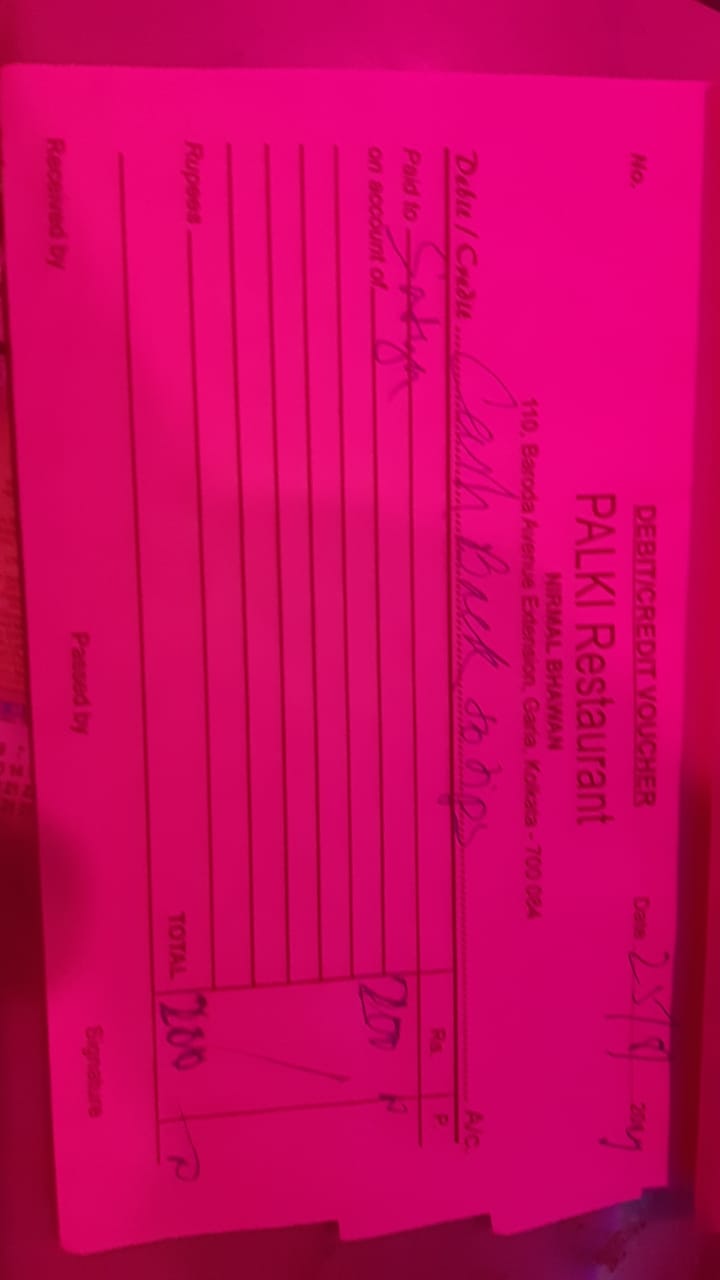 No.
DEBIT/CREDIT VOUCHER
Date 25/8/ 20
PALKI Restaurant
NIRMAL BHAWAN
110, Baroda Avenue Extension, Garia, Kolkata - 700 084
Debit / Credit Cash Back to tips A/c.
Rs. P.
Paid to Satya
on account of 200
Rupees TOTAL 200
Received by Passed by Signature